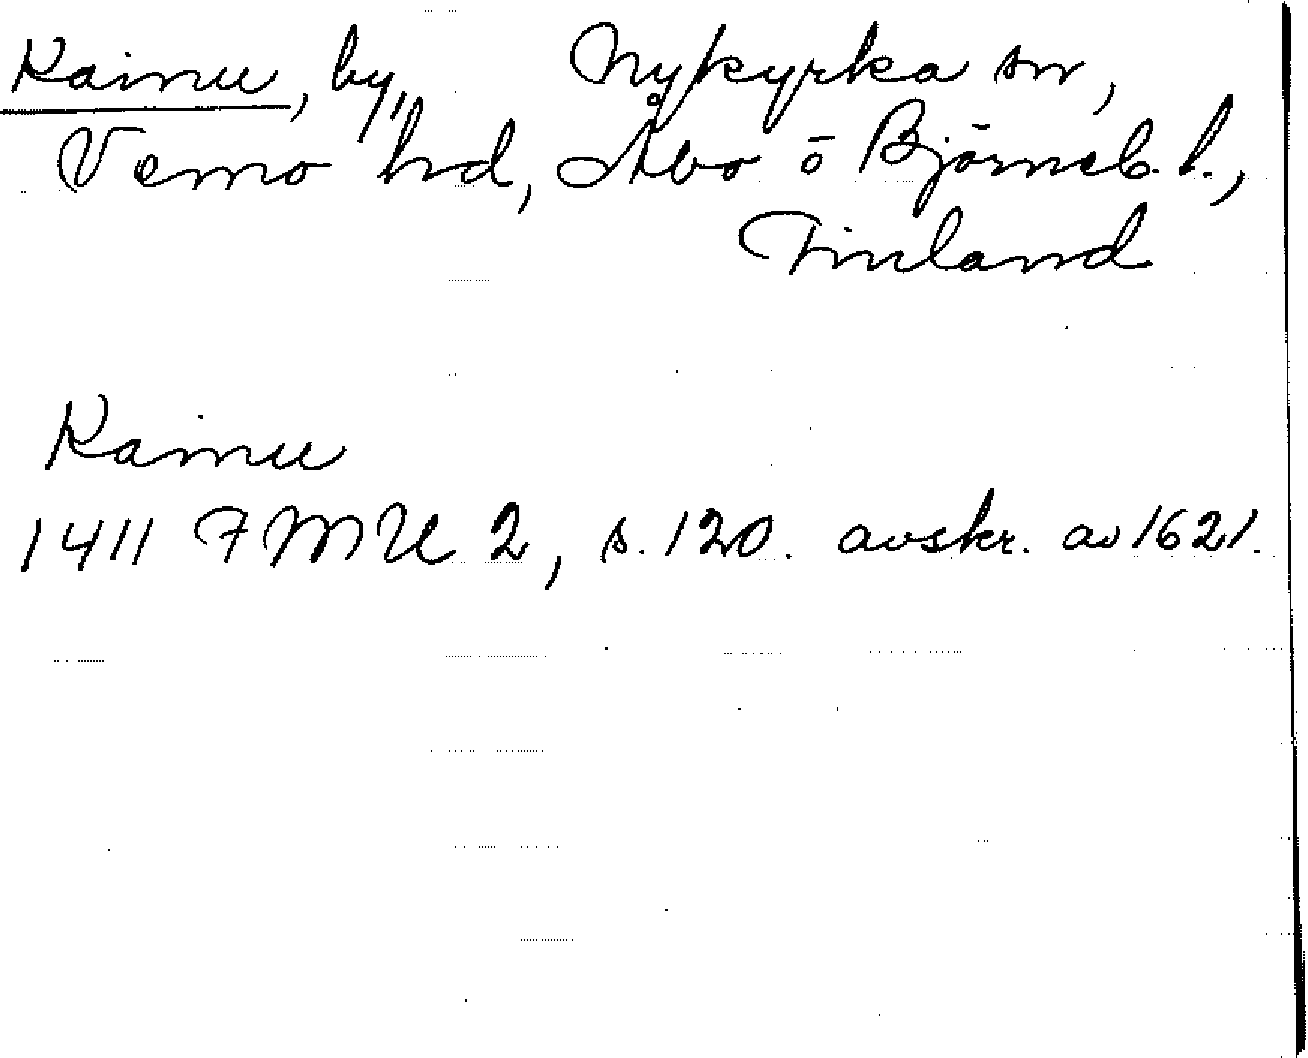 Kainu, by, Nykyrka sn,
Vemo hd, Åbo o Björneb. l.,
Finland
Kainu
1411 FMU 2, s. 120. avskr. av 1621.